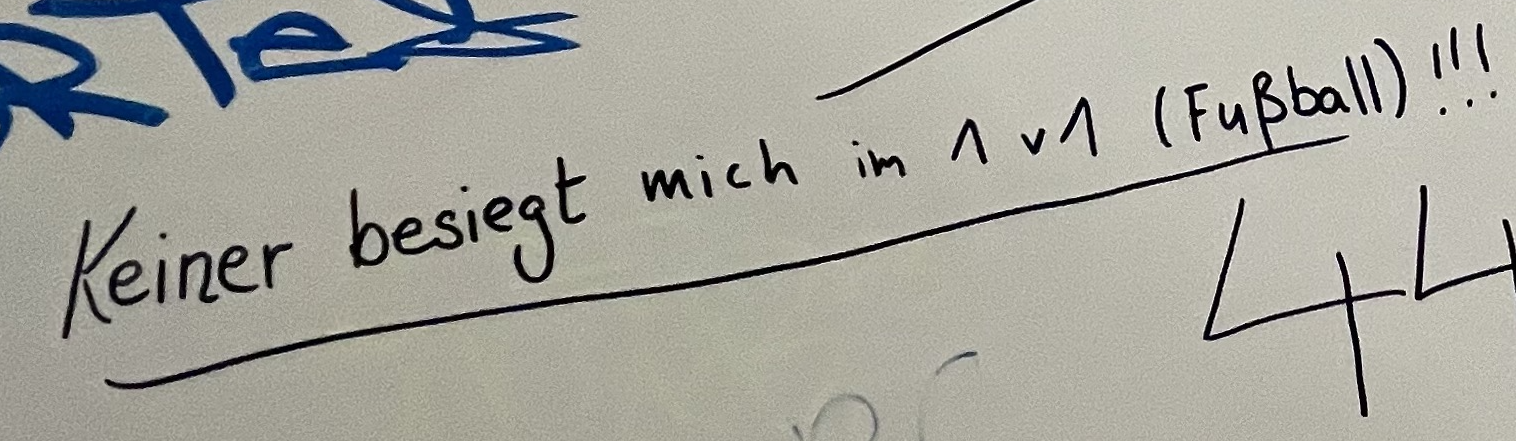 Keiner besiegt mich im 1 v 1 (Fußball)!!!
44